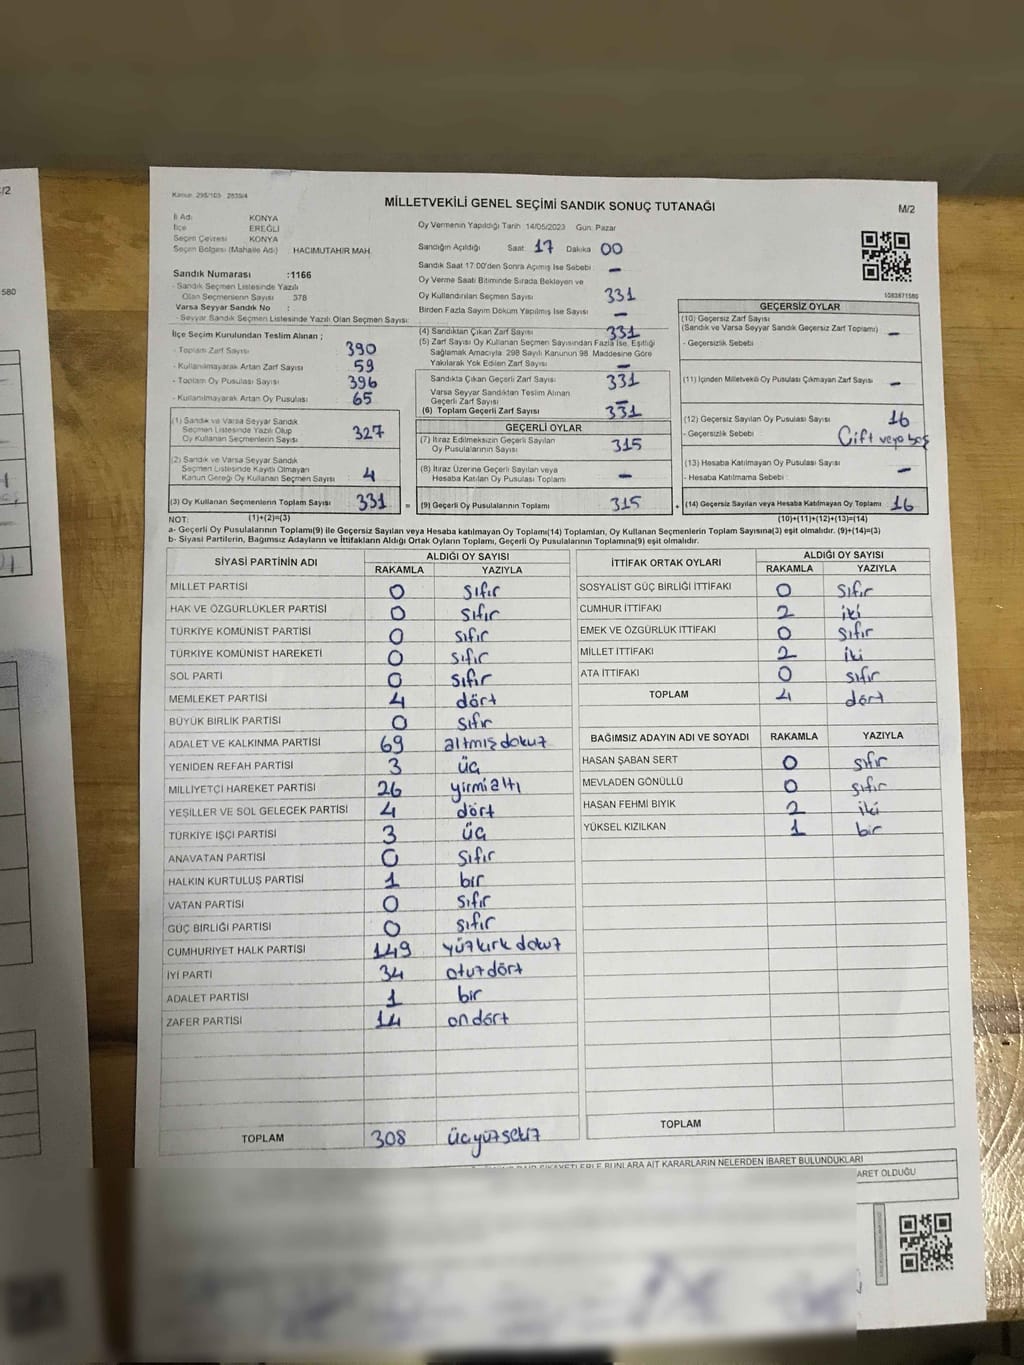 /2
580
Kanun 298/105 2839/4
MİLLETVEKİLİ GENEL SEÇİMİ SANDIK SONUÇ TUTANAĞI
M/2
İl Adı KONYA
İlçe EREĞLİ
Seçim Çevresi KONYA
Seçim Bölgesi (Mahalle Adı) HACIMUTAHIR MAH.
Oy Vermenin Yapıldığı Tarih 14/05/2023 Gün: Pazar
Sandığın Açıldığı Saat 17 Dakika 00
Sandık Saat 17:00'den Sonra Açılmış İse Sebebi : –
Oy Verme Saati Bitiminde Sırada Bekleyen ve
Oy Kullandırılan Seçmen Sayısı 331
Birden Fazla Sayım Döküm Yapılmış İse Sayısı –
1083871580
Sandık Numarası :1166
- Sandık Seçmen Listesinde Yazılı
Olan Seçmenlerin Sayısı 378
Varsa Seyyar Sandık No :
- Seyyar Sandık Seçmen Listesinde Yazılı Olan Seçmen Sayısı:
İlçe Seçim Kurulundan Teslim Alınan ;
- Toplam Zarf Sayısı 390
- Kullanılmayarak Artan Zarf Sayısı 59
- Toplam Oy Pusulası Sayısı 396
- Kullanılmayarak Artan Oy Pusulası 65
(1) Sandık ve Varsa Seyyar Sandık
Seçmen Listesinde Yazılı Olup
Oy Kullanan Seçmenlerin Sayısı 327
(2) Sandık ve Varsa Seyyar Sandık
Seçmen Listesinde Kayıtlı Olmayan
Kanun Gereği Oy Kullanan Seçmen Sayısı 4
(3) Oy Kullanan Seçmenlerin Toplam Sayısı 331 =
(4) Sandıktan Çıkan Zarf Sayısı 331
(5) Zarf Sayısı Oy Kullanan Seçmen Sayısından Fazla İse, Eşitliği
Sağlamak Amacıyla 298 Sayılı Kanunun 98 Maddesine Göre
Yakılarak Yok Edilen Zarf Sayısı –
Sandıkta Çıkan Geçerli Zarf Sayısı 331
Varsa Seyyar Sandıktan Teslim Alınan
Geçerli Zarf Sayısı –
(6) Toplam Geçerli Zarf Sayısı 331
GEÇERLİ OYLAR
(7) İtiraz Edilmeksizin Geçerli Sayılan
Oy Pusulalarının Sayısı 315
(8) İtiraz Üzerine Geçerli Sayılan veya
Hesaba Katılan Oy Pusulası Toplamı –
(9) Geçerli Oy Pusulalarının Toplamı 315 +
GEÇERSİZ OYLAR
(10) Geçersiz Zarf Sayısı
(Sandık ve Varsa Seyyar Sandık Geçersiz Zarf Toplamı) –
- Geçersizlik Sebebi
(11) İçinden Milletvekili Oy Pusulası Çıkmayan Zarf Sayısı –
(12) Geçersiz Sayılan Oy Pusulası Sayısı 16
- Geçersizlik Sebebi : Çift veya boş
(13) Hesaba Katılmayan Oy Pusulası Sayısı –
- Hesaba Katılmama Sebebi :
(14) Geçersiz Sayılan veya Hesaba Katılmayan Oy Toplamı 16
NOT: (1)+(2)=(3) (10)+(11)+(12)+(13)=(14)
a- Geçerli Oy Pusulalarının Toplamı(9) ile Geçersiz Sayılan veya Hesaba katılmayan Oy Toplamı(14) Toplamları, Oy Kullanan Seçmenlerin Toplam Sayısına(3) eşit olmalıdır. (9)+(14)=(3)
b- Siyasi Partilerin, Bağımsız Adayların ve İttifakların Aldığı Ortak Oyların Toplamı, Geçerli Oy Pusulalarının Toplamına(9) eşit olmalıdır.
SİYASİ PARTİNİN ADI ALDIĞI OY SAYISI
RAKAMLA YAZIYLA
MİLLET PARTİSİ 0 sıfır
HAK VE ÖZGÜRLÜKLER PARTİSİ 0 sıfır
TÜRKİYE KOMÜNİST PARTİSİ 0 sıfır
TÜRKİYE KOMÜNİST HAREKETİ 0 sıfır
SOL PARTİ 0 sıfır
MEMLEKET PARTİSİ 4 dört
BÜYÜK BİRLİK PARTİSİ 0 sıfır
ADALET VE KALKINMA PARTİSİ 69 altmış dokuz
YENİDEN REFAH PARTİSİ 3 üç
MİLLİYETÇİ HAREKET PARTİSİ 26 yirmi altı
YEŞİLLER VE SOL GELECEK PARTİSİ 4 dört
TÜRKİYE İŞÇİ PARTİSİ 3 üç
ANAVATAN PARTİSİ 0 sıfır
HALKIN KURTULUŞ PARTİSİ 1 bir
VATAN PARTİSİ 0 sıfır
GÜÇ BİRLİĞİ PARTİSİ 0 sıfır
CUMHURİYET HALK PARTİSİ 149 yüz kırk dokuz
İYİ PARTİ 34 otuz dört
ADALET PARTİSİ 1 bir
ZAFER PARTİSİ 14 on dört
TOPLAM 308 üç yüz sekiz
İTTİFAK ORTAK OYLARI ALDIĞI OY SAYISI
RAKAMLA YAZIYLA
SOSYALİST GÜÇ BİRLİĞİ İTTİFAKI 0 sıfır
CUMHUR İTTİFAKI 2 iki
EMEK VE ÖZGÜRLÜK İTTİFAKI 0 sıfır
MİLLET İTTİFAKI 2 iki
ATA İTTİFAKI 0 sıfır
TOPLAM 4 dört
BAĞIMSIZ ADAYIN ADI VE SOYADI RAKAMLA YAZIYLA
HASAN ŞABAN SERT 0 sıfır
MEVLADEN GÖNÜLLÜ 0 sıfır
HASAN FEHMİ BIYIK 2 iki
YÜKSEL KIZILKAN 1 bir
TOPLAM
BUNLARA AİT KARARLARIN NELERDEN İBARET BULUNDUKLARI
ARET OLDUĞU